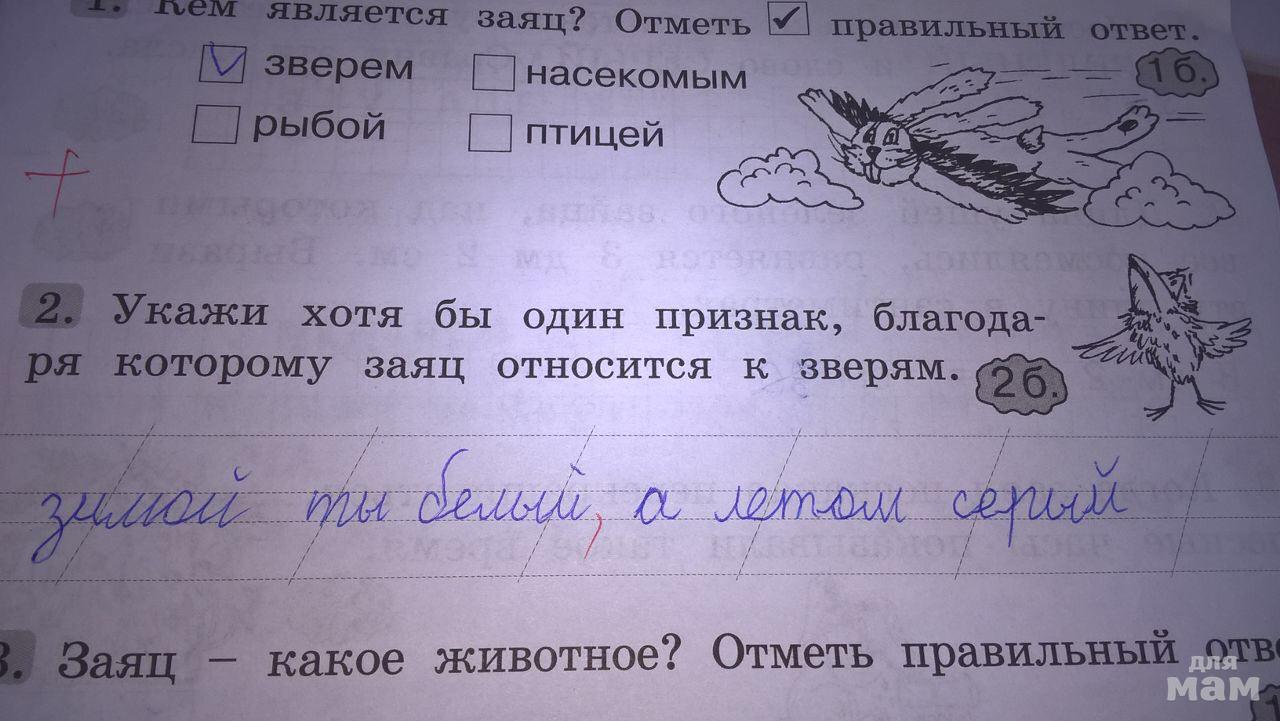 1. Кем является заяц? Отметь ✔ правильный ответ.
зверем насекомым
1б.
рыбой птицей
2. Укажи хотя бы один признак, благода-
ря которому заяц относится к зверям.
2б.
зимой ты белый, а летом серый
3. Заяц – какое животное? Отметь правильный
для
мам